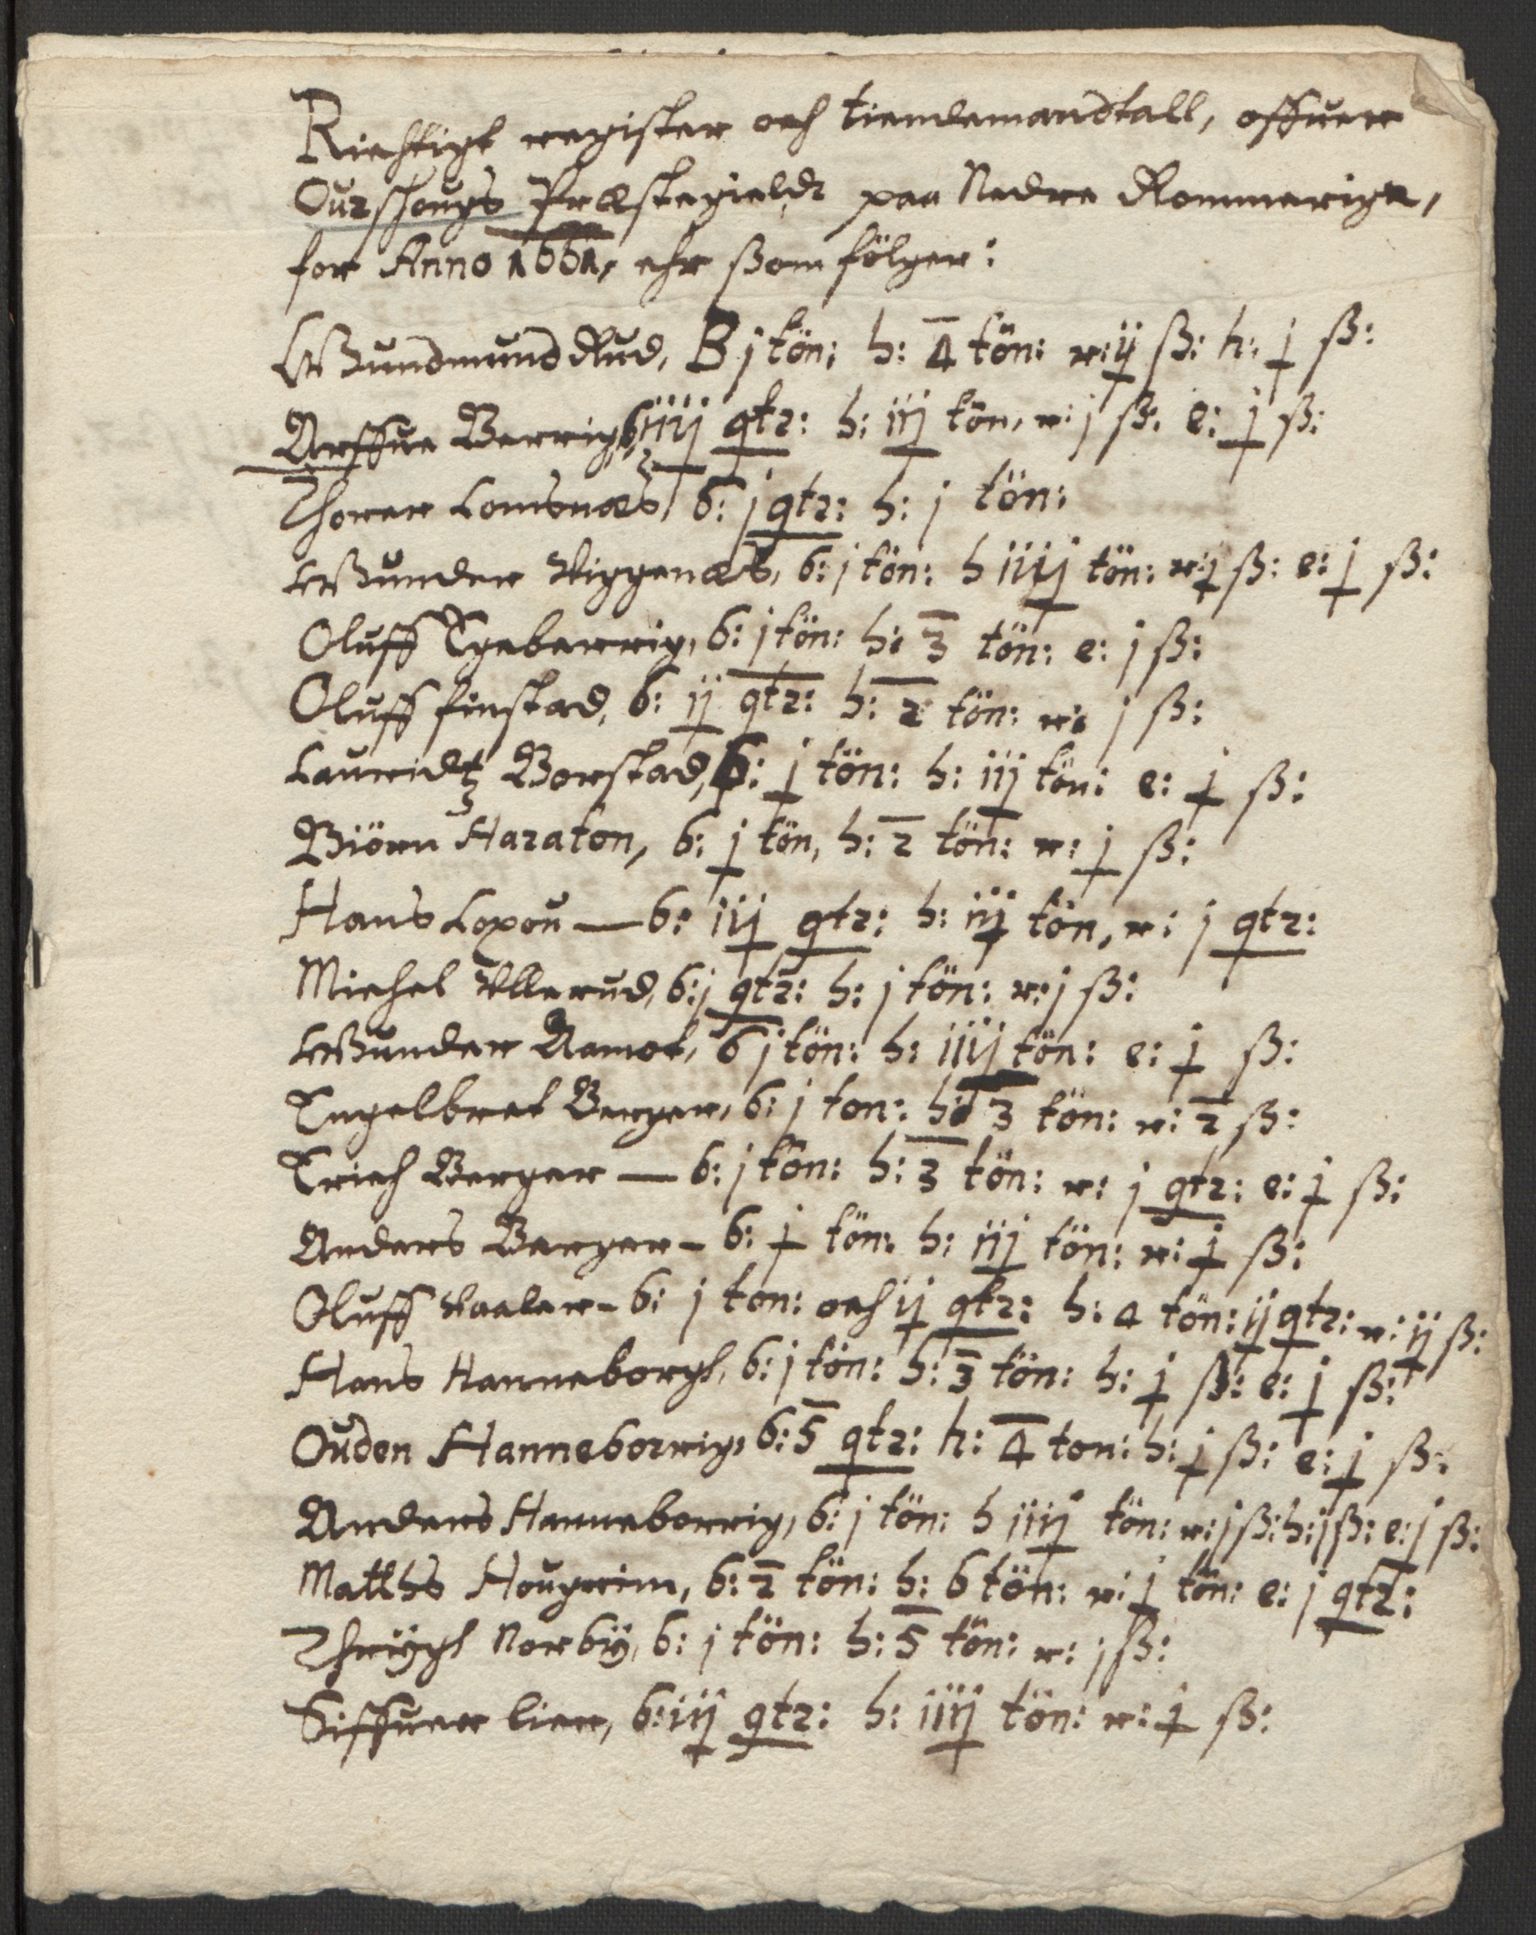 Richtigt register och tiendemandtall, offuer
Ourschougs Præstegieldt paa Nedre Rommerige,
for Anno 1661, ehr ßom fölger:
Gundmund Rud, B j tön: h: 4 tön: r: ij ß: h: j ß:
Arffue Berrig, b: iiij qtr: h: iij tön, r: j ß: e: j ß:
Thorer Lomsnæs, b: j qtr: h: j tön:
Gunder Viggenæs, b: j tön: h iiij tön: r: j ß: e: j ß:
Oluff Egeberrig, b: j tön: h: 3 tön: e: j ß:
Oluff finstad, b: ij qtr: h: 2 tön: r: j ß:
Lauridtz Borstad, b: j tön: h: iij tön: e: j ß:
Biörn Haraton, b: j tön, h: 2 tön: r: j ß:
Hans Lopou — b: iij qtr: h: iij tön, r: j qtr:
Michel Ullerud, b: j qtr: h: j tön: r: j ß:
Gunder Aamot, b j tön: h: iiij tön: e: j ß:
Engelbret Berger, b: j ton: h: 3 tön: r: 2 ß:
Erich Berger — b: j tön: h: 3 tön: r: j qtr: e: j ß:
Anders Berger - b: j tön: h: iij tön: r: j ß:
Oluff Vaaler - b: j ton: och ij qtr: h: 4 tön: ij qtr: r: ij ß:
Hans Hanneborgh, b: j tön: h: 3 tön: h: j ß: e: j ß:
Ouden Hanneborrig, b: 5 qtr: h: 4 ton: h: j ß: e: j ß:
Anders Hanneborrig, b: j tön: h iiij tön: r: j ß: h: j ß: e: j ß:
Maths Hougrim, b: 2 tön: h: 6 tön: r: j tön: e: j qtr:
Thrÿgh Norbÿ, b: j tön: h: 5 tön: r: j ß:
Siffuer lier, b: iij qtr: h: iiij tön: r: j ß: